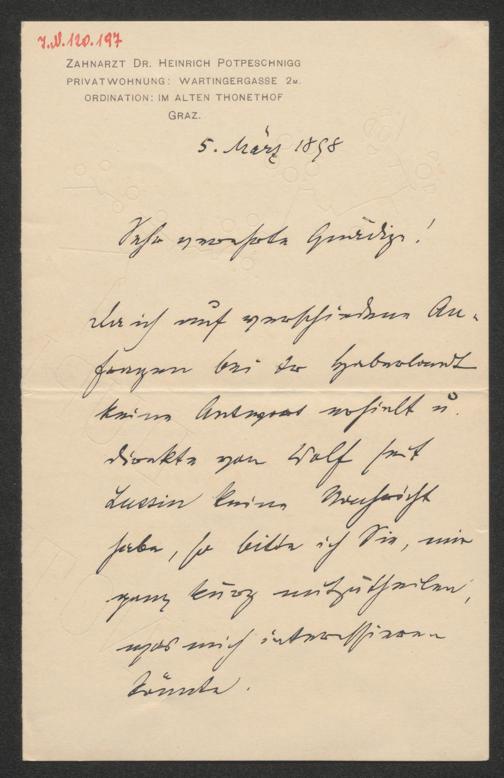 J.N. 120.197
ZAHNARZT DR. HEINRICH POTPESCHNIGG
PRIVATWOHNUNG: WARTINGERGASSE 2
ORDINATION: IM ALTEN THONETHOF
GRAZ.
5. März 1898
Sehr verehrte Gnädige!
Da ich auf verschiedene An-
fragen bei Dr Haberlandt
keine Antwort erhielt u.
direkte von Wolf seit
Lussin keine Nachricht
habe, so bitte ich Sie, mir
ganz kurz mitzutheilen,
was mich interessieren
könnte.